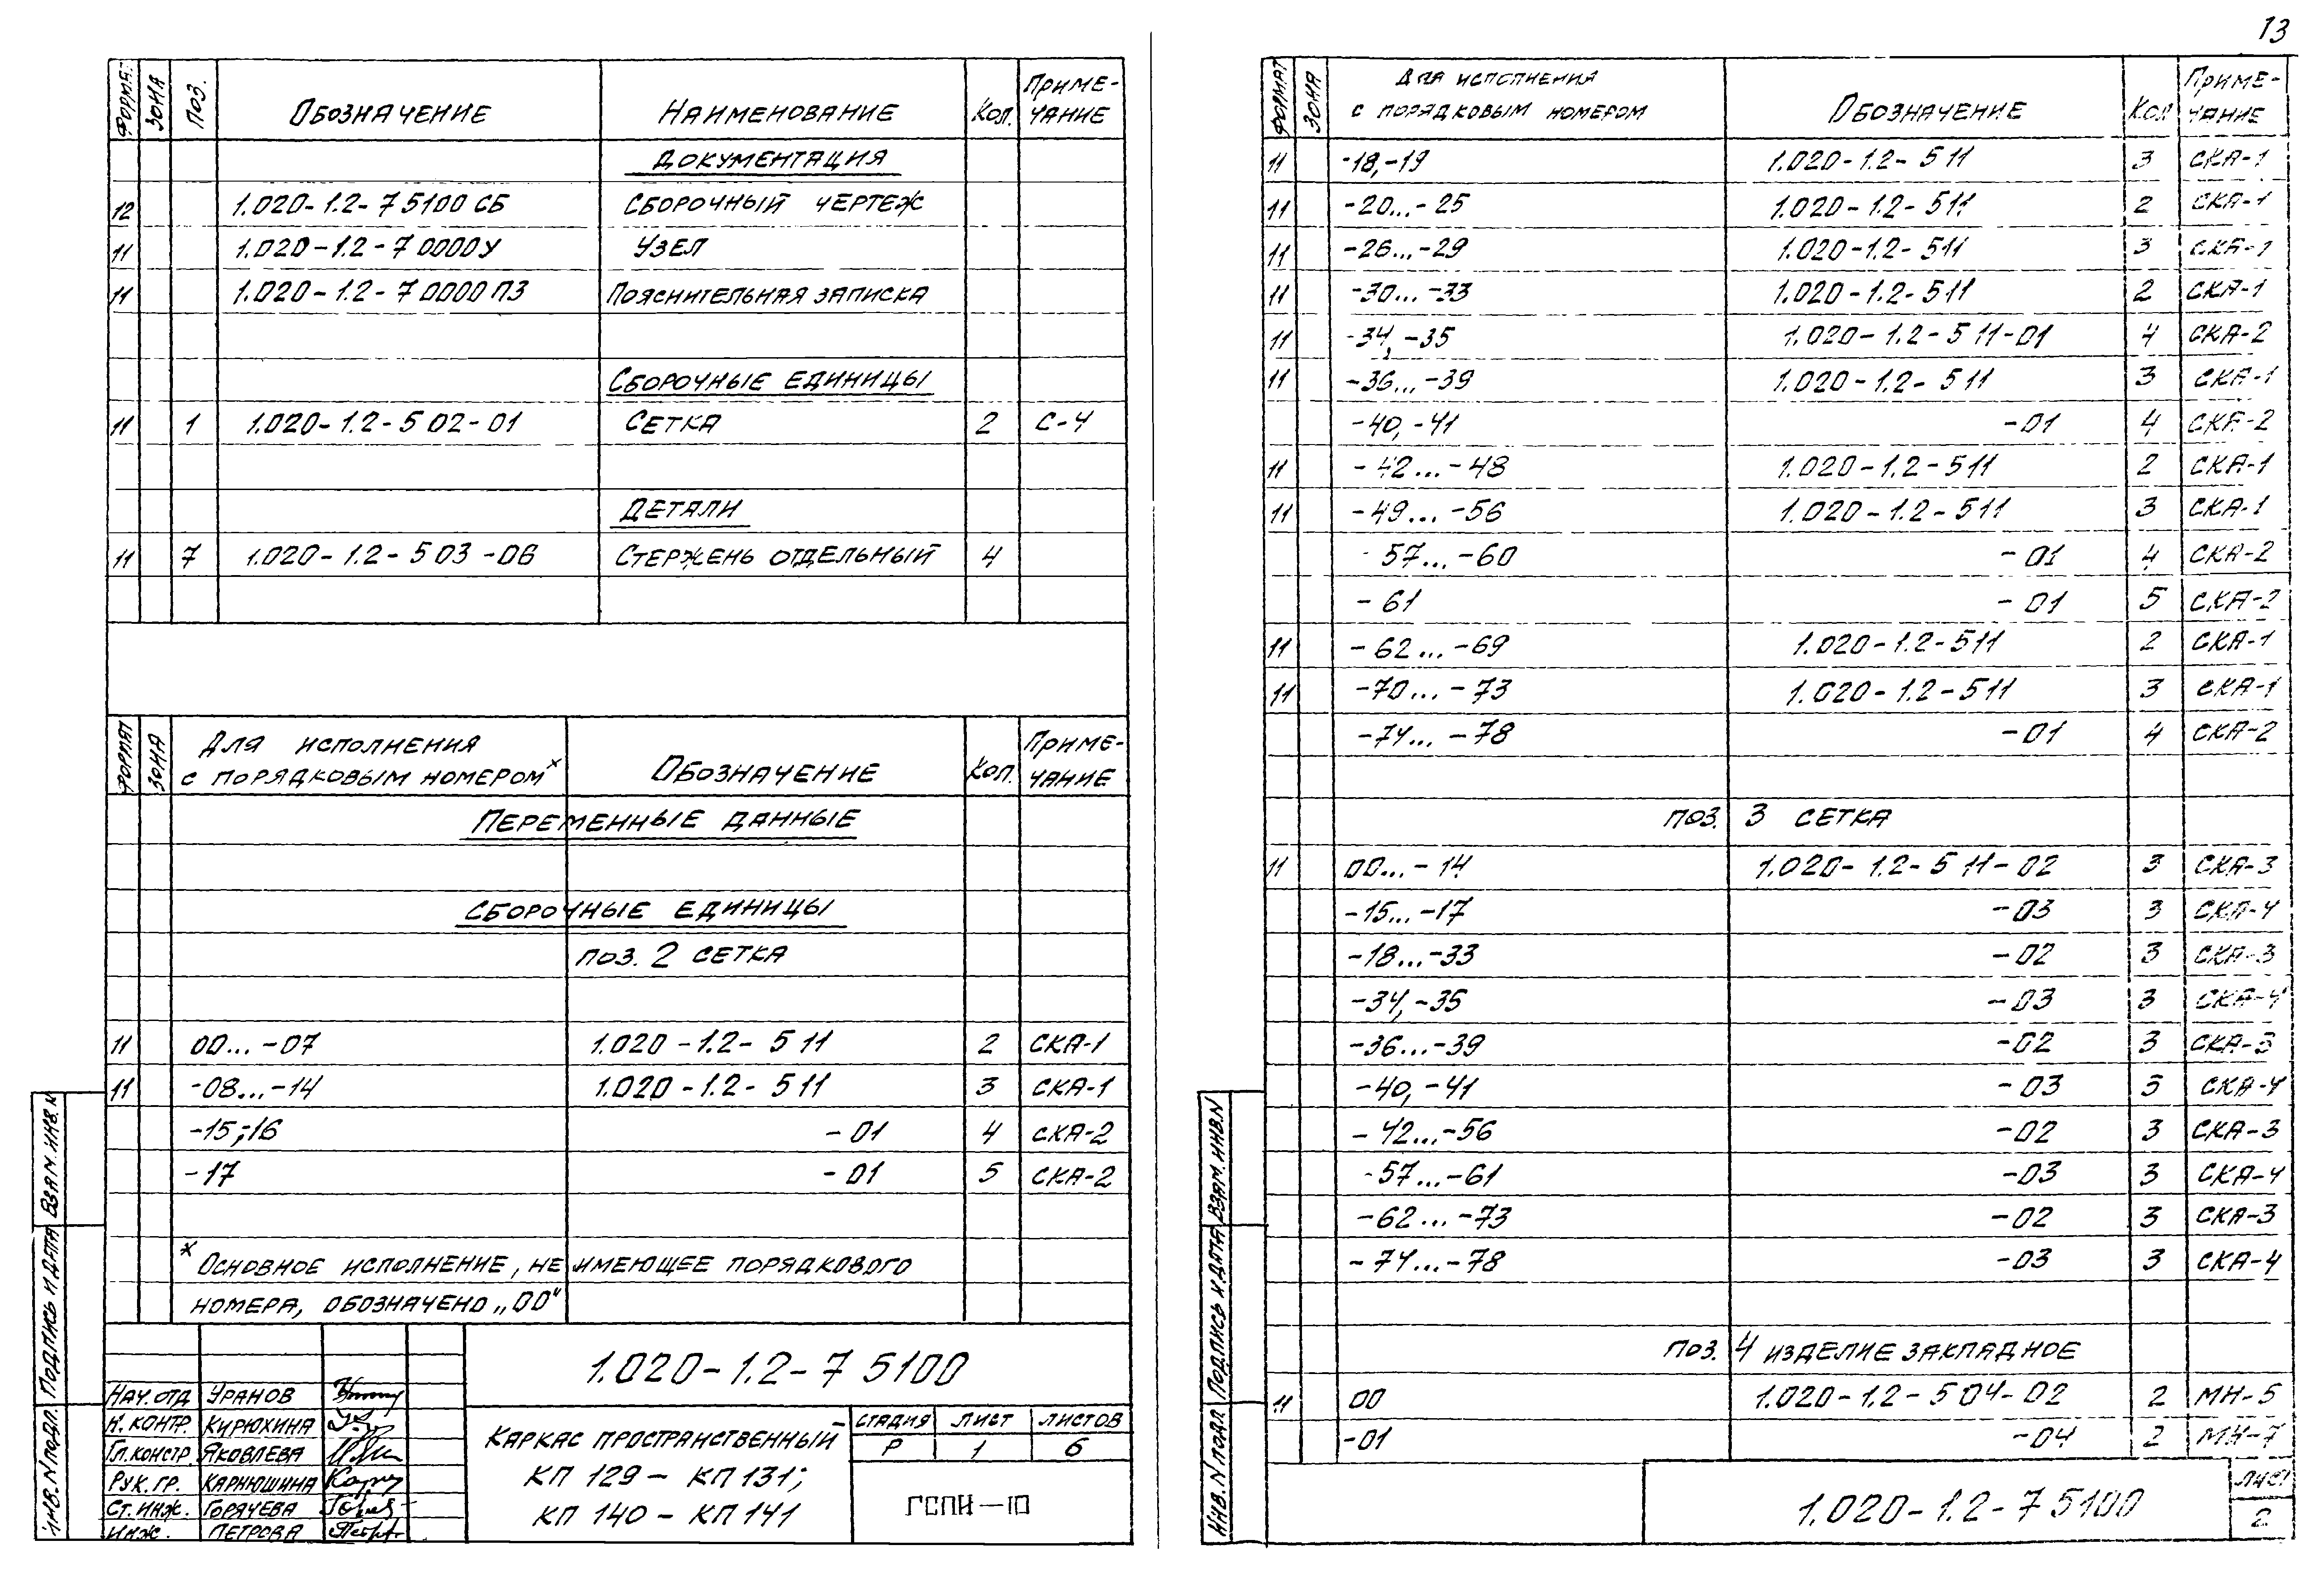 13
ФОРМАТ ЗОНА ПОЗ. ОБОЗНАЧЕНИЕ НАИМЕНОВАНИЕ КОЛ. ПРИМЕ-ЧАНИЕ
ДОКУМЕНТАЦИЯ
12 1.020-1.2-7 5100 СБ СБОРОЧНЫЙ ЧЕРТЕЖ
11 1.020-1.2-7 0000У УЗЕЛ
11 1.020-1.2-7 0000 ПЗ ПОЯСНИТЕЛЬНАЯ ЗАПИСКА
СБОРОЧНЫЕ ЕДИНИЦЫ
11 1 1.020-1.2-5 02-01 СЕТКА 2 С-4
ДЕТАЛИ
11 7 1.020-1.2-5 03-06 СТЕРЖЕНЬ ОТДЕЛЬНЫЙ 4
ФОРМАТ ЗОНА ДЛЯ ИСПОЛНЕНИЯ С ПОРЯДКОВЫМ НОМЕРОМ* ОБОЗНАЧЕНИЕ КОЛ. ПРИМЕ-ЧАНИЕ
ПЕРЕМЕННЫЕ ДАННЫЕ
СБОРОЧНЫЕ ЕДИНИЦЫ
ПОЗ. 2 СЕТКА
11 00...-07 1.020-1.2-5 11 2 СКА-1
11 -08...-14 1.020-1.2-5 11 3 СКА-1
-15;-16 -01 4 СКА-2
-17 -01 5 СКА-2
* ОСНОВНОЕ ИСПОЛНЕНИЕ, НЕ ИМЕЮЩЕЕ ПОРЯДКОВОГО
НОМЕРА, ОБОЗНАЧЕНО „00"
ИНВ. N ПОДЛ. ПОДПИСЬ И ДАТА ВЗАМ. ИНВ. N
1.020-1.2-7 5100
НАЧ. ОТД УРАНОВ
Н. КОНТР. КИРЮХИНА
ГЛ. КОНСТР ЯКОВЛЕВА
РУК. ГР. КАРНЮШИНА
СТ. ИНЖ. ГОРЯЧЕВА
ИНЖ. ПЕТРОВА
КАРКАС ПРОСТРАНСТВЕННЫЙ
КП 129 - КП 131;
КП 140 - КП 141
СТАДИЯ ЛИСТ ЛИСТОВ
Р 1 6
ГСПИ-10
ФОРМАТ ЗОНА ДЛЯ ИСПОЛНЕНИЯ С ПОРЯДКОВЫМ НОМЕРОМ ОБОЗНАЧЕНИЕ КОЛ ПРИМЕ-ЧАНИЕ
11 -18,-19 1.020-1.2-5 11 3 СКА-1
11 -20...-25 1.020-1.2-511 2 СКА-1
11 -26...-29 1.020-1.2-511 3 СКА-1
11 -30...-33 1.020-1.2-511 2 СКА-1
11 -34,-35 1.020-1.2-5 11-01 4 СКА-2
11 -36...-39 1.020-1.2-511 3 СКА-1
-40,-41 -01 4 СКА-2
11 -42...-48 1.020-1.2-511 2 СКА-1
11 -49...-56 1.020-1.2-511 3 СКА-1
-57...-60 -01 4 СКА-2
-61 -01 5 СКА-2
11 -62...-69 1.020-1.2-511 2 СКА-1
11 -70...-73 1.020-1.2-511 3 СКА-1
-74...-78 -01 4 СКА-2
ПОЗ. 3 СЕТКА
11 00...-14 1.020-1.2-5 11-02 3 СКА-3
-15...-17 -03 3 СКА-4
-18...-33 -02 3 СКА-3
-34,-35 -03 3 СКА-4
-36...-39 -02 3 СКА-3
-40,-41 -03 3 СКА-4
-42...-56 -02 3 СКА-3
-57...-61 -03 3 СКА-4
-62...-73 -02 3 СКА-3
-74...-78 -03 3 СКА-4
ПОЗ. 4 ИЗДЕЛИЕ ЗАКЛАДНОЕ
11 00 1.020-1.2-5 04-02 2 МН-5
-01 -04 2 МН-7
ИНВ. N ПОДЛ ПОДПИСЬ И ДАТА ВЗАМ. ИНВ. N
1.020-1.2-7 5100
ЛИСТ
2